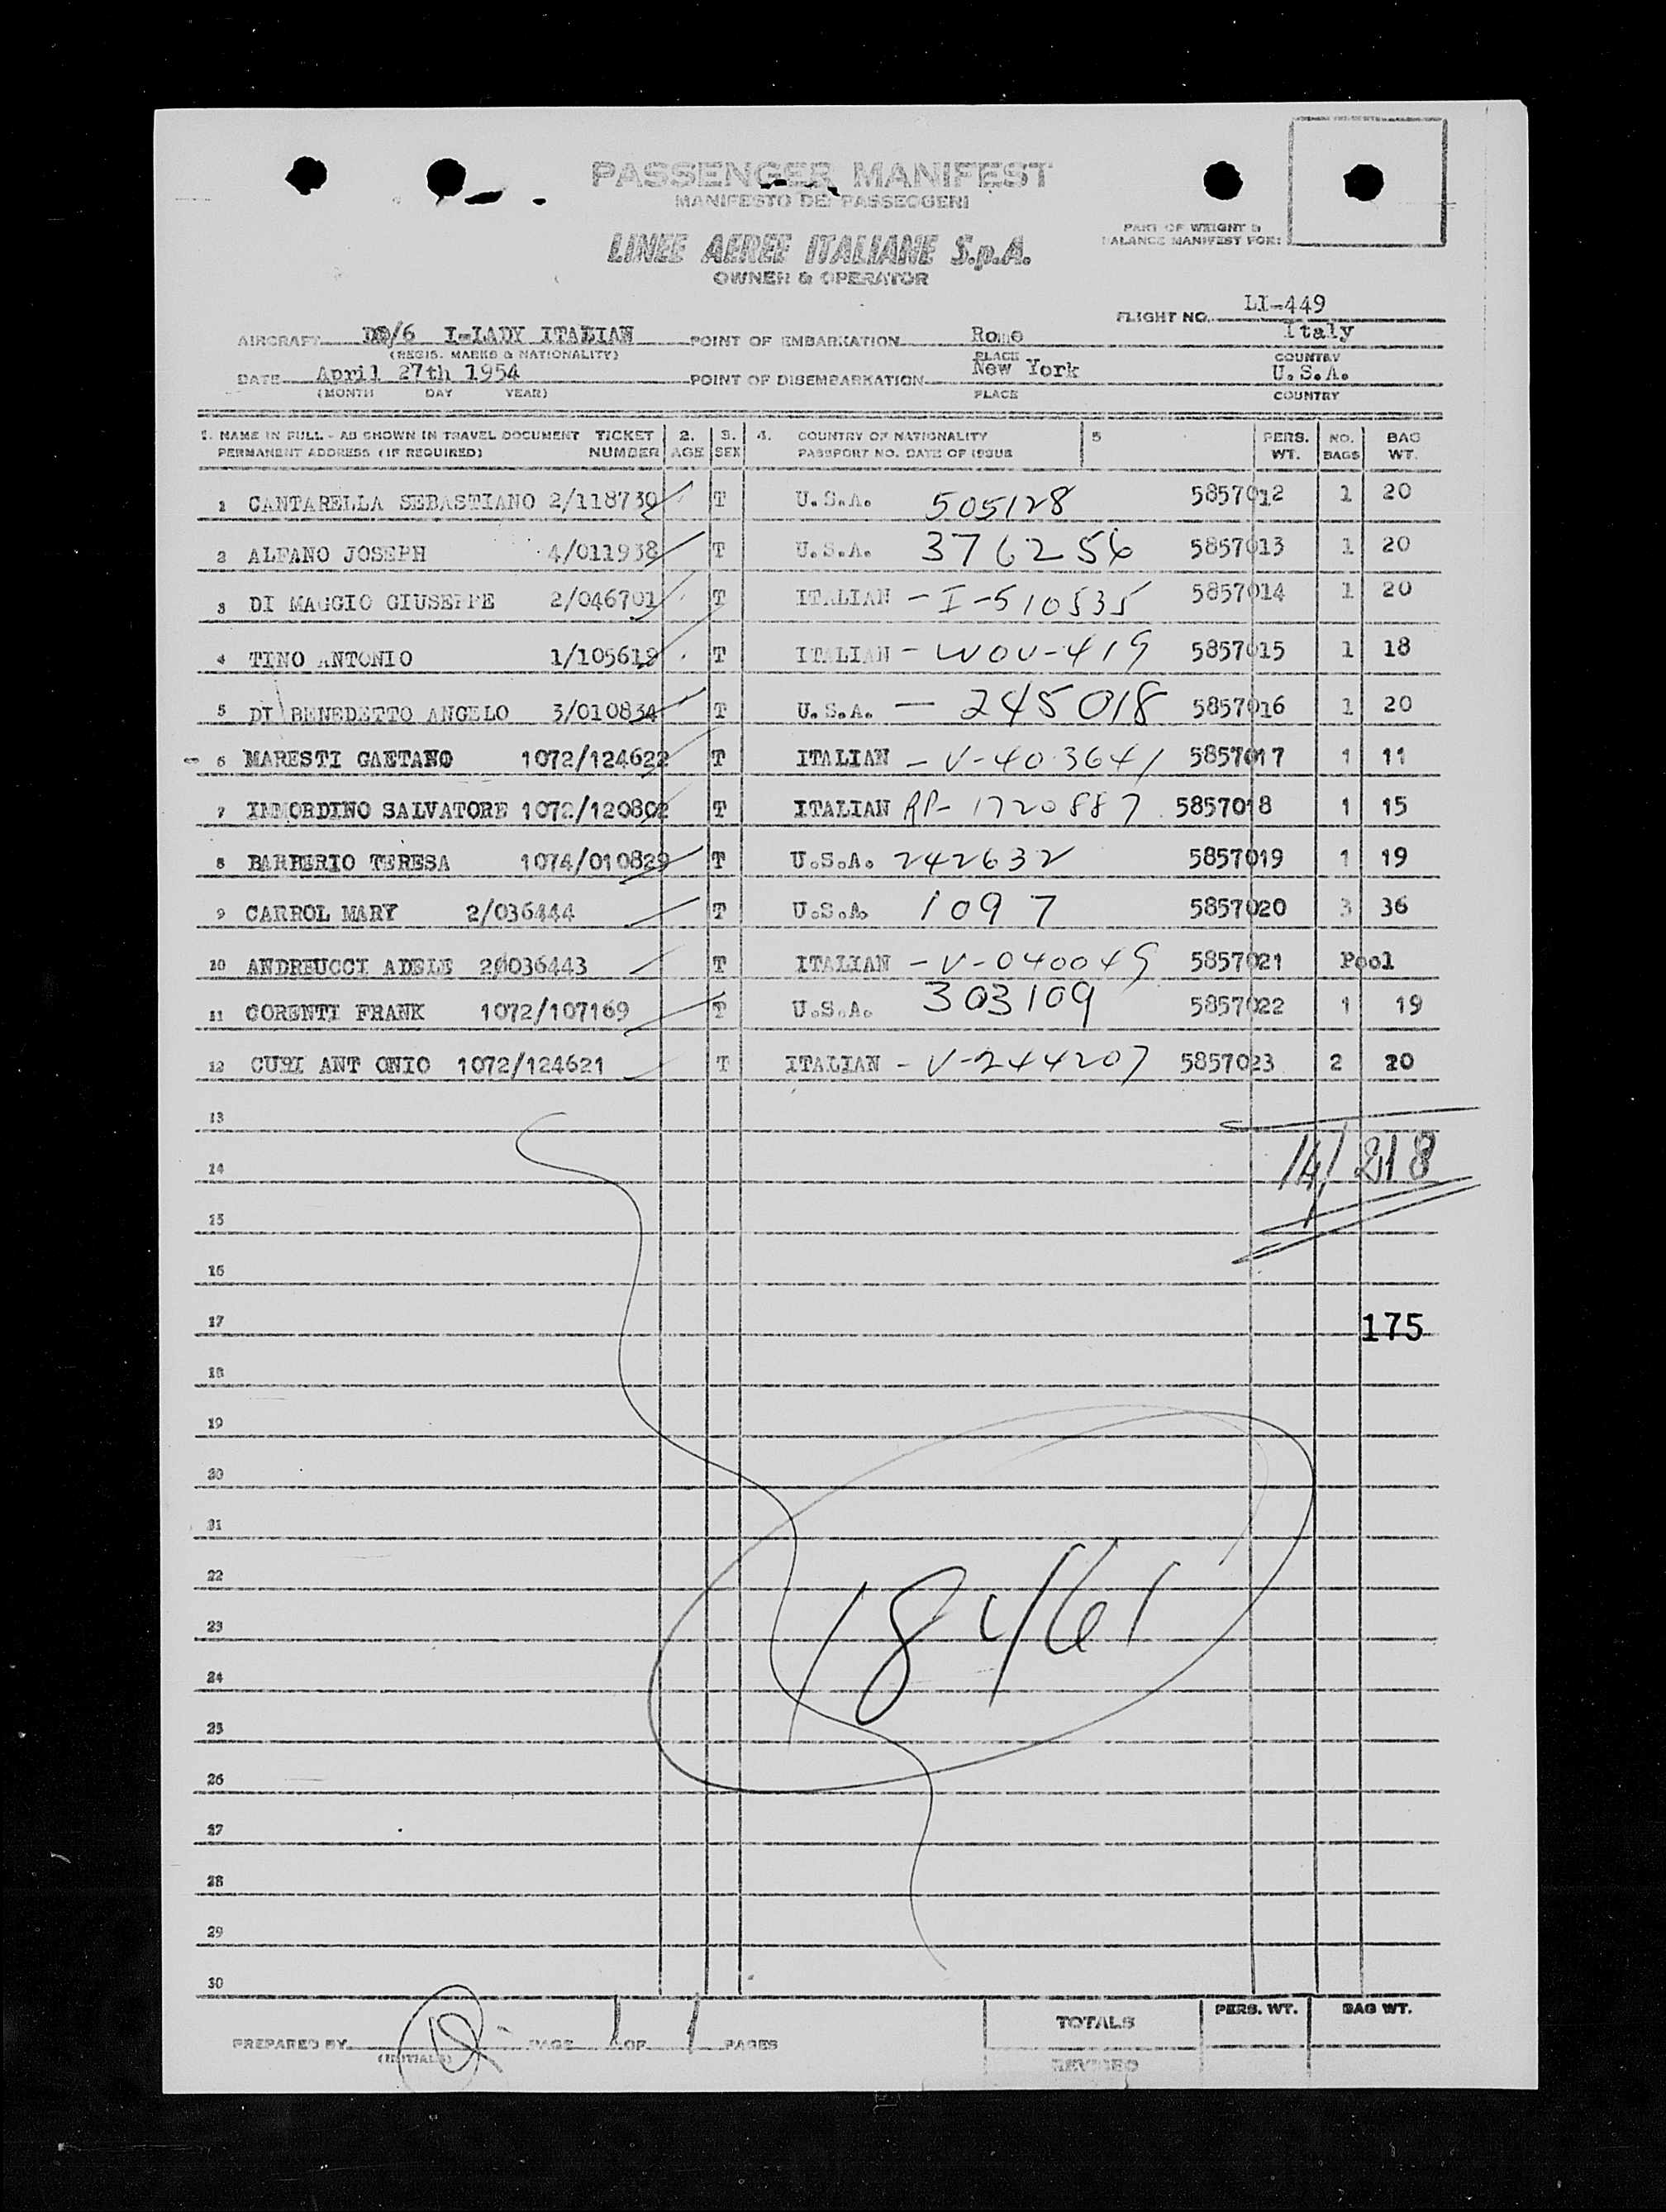 PASSENGER MANIFEST
MANIFESTO DEI PASSEGGERI
LINEE AEREE ITALIANE S.p.A.
OWNER & OPERATOR
PART OF WEIGHT &
BALANCE MANIFEST FOR:
FLIGHT NO. LI-449
AIRCRAFT DC/6 I-LADY ITALIAN POINT OF EMBARKATION Rome Italy
(REGIS. MARKS & NATIONALITY) PLACE COUNTRY
DATE April 27th 1954 POINT OF DISEMBARKATION New York U.S.A.
(MONTH DAY YEAR) PLACE COUNTRY
1. NAME IN FULL - AS SHOWN IN TRAVEL DOCUMENT TICKET 2. 3. 4. COUNTRY OF NATIONALITY 5 PERS. NO. BAG
PERMANENT ADDRESS (IF REQUIRED) NUMBER AGE SEX PASSPORT NO. DATE OF ISSUE WT. BAGS WT.
1 CANTARELLA SEBASTIANO 2/118730 T U.S.A. 505128 5857012 1 20
2 ALFANO JOSEPH 4/011938 T U.S.A. 376256 5857013 1 20
3 DI MAGGIO GIUSEPPE 2/046701 T ITALIAN - I-510535 5857014 1 20
4 TINO ANTONIO 1/105619 T ITALIAN - WOU-419 5857015 1 18
5 DI BENEDETTO ANGELO 3/010834 T U.S.A. - 245018 5857016 1 20
6 MARESTI GAETANO 1072/124622 T ITALIAN - V-403641 5857017 1 11
7 IMMORDINO SALVATORE 1072/120802 T ITALIAN RP-1720887 5857018 1 15
8 BARBERIO TERESA 1074/010829 T U.S.A. 242632 5857019 1 19
9 CARROL MARY 2/036444 T U.S.A. 1097 5857020 3 36
10 ANDREUCCI ADELE 2/036443 T ITALIAN - V-040049 5857021 Pool
11 CORENTI FRANK 1072/107169 T U.S.A. 303109 5857022 1 19
12 CUPI ANT ONIO 1072/124621 T ITALIAN - V-244207 5857023 2 20
13
14 14/218
15
16
17 175
18
19
20
21
22
23 18461
24
25
26
27
28
29
30
PREPARED BY PAGE 1 OF 1 PAGES TOTALS PERS. WT. BAG WT.
(INITIALS) REVISED